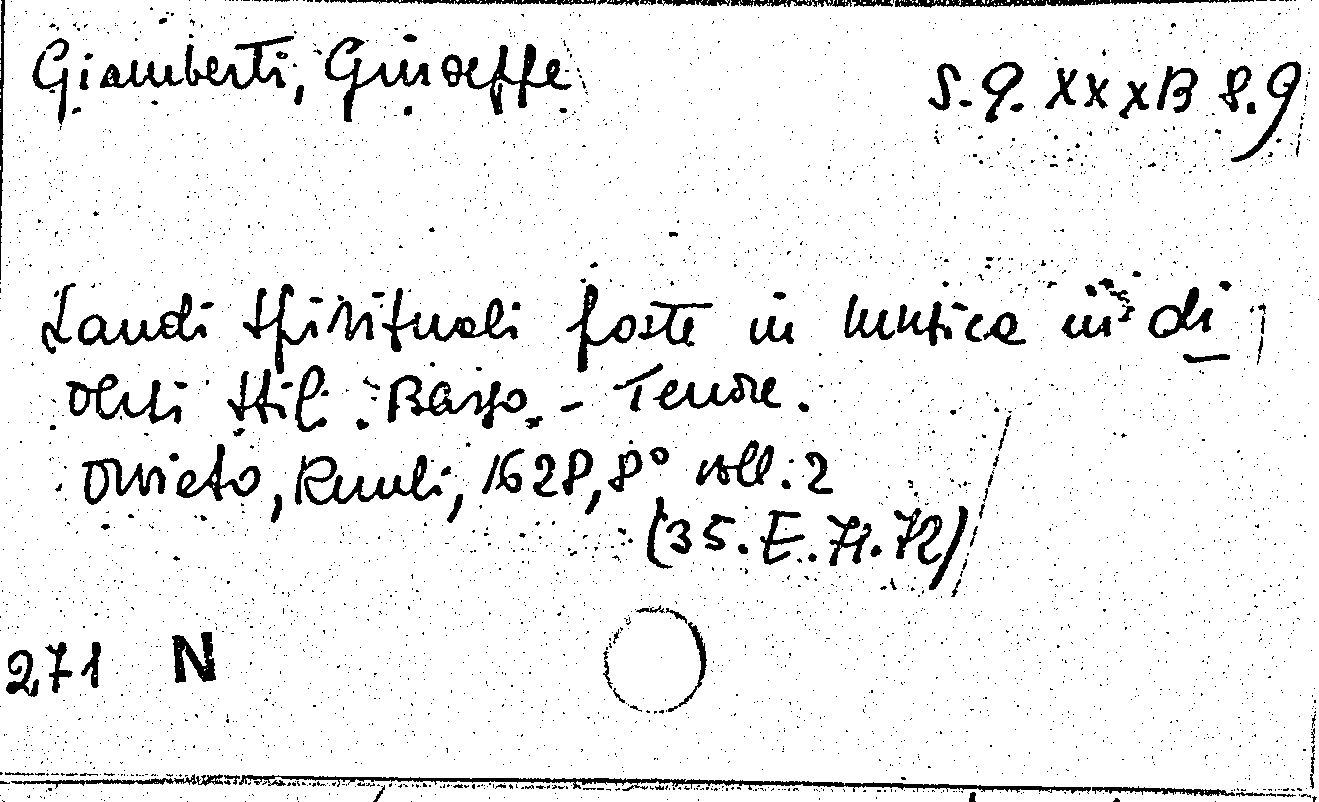 Giamberti, Giuseppe
S. Q. XXXB 8.9
Laudi spirituali poste in musica in di
versi stili. Basso. - Tenore.
Orvieto, Ruuli, 1628, 8° voll. 2
(35. E. 71. 72)
271 N